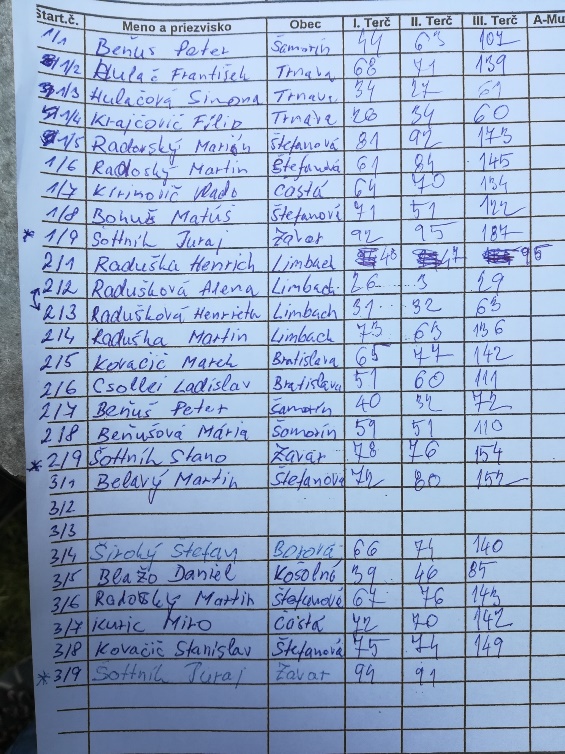 Štart.č. Meno a priezvisko Obec I. Terč II. Terč III. Terč A-Mu
1/1 Beňuš Peter Šamorín 44 63 107
1/2 Hulač František Trnava 68 71 139
1/3 Hulačová Simona Trnava 34 27 61
1/4 Krajčovič Filip Trnava 26 34 60
1/5 Radovský Marián Štefanová 81 92 173
1/6 Radoský Martin Štefanová 61 84 145
1/7 Kirinovič Vlado Častá 64 70 134
1/8 Bohuš Matúš Štefanová 71 51 122
* 1/9 Šottník Juraj Zavar 92 95 187
2/1 Raduška Henrich Limbach 48 47 95
2/2 Radušková Alena Limbach 26 3 29
2/3 Radušková Henrieta Limbach 31 32 63
2/4 Raduška Martin Limbach 73 63 136
2/5 Kovačič Marek Bratislava 65 77 142
2/6 Csollei Ladislav Bratislava 51 60 111
2/7 Beňuš Peter Šamorín 40 32 72
2/8 Beňušová Mária Šamorín 59 51 110
* 2/9 Šottník Stano Zavar 78 76 154
3/1 Belavý Martin Štefanová 72 80 152
3/2
3/3
3/4 Široký Štefan 66 74 140
3/5 Blažo Daniel Košolná 39 46 85
3/6 Radoský Martin Štefanová 67 76 143
3/7 Kuric Miro Častá 72 70 142
3/8 Kovačič Stanislav Štefanová 75 74 149
* 3/9 Sottník Juraj Zavar 94 91